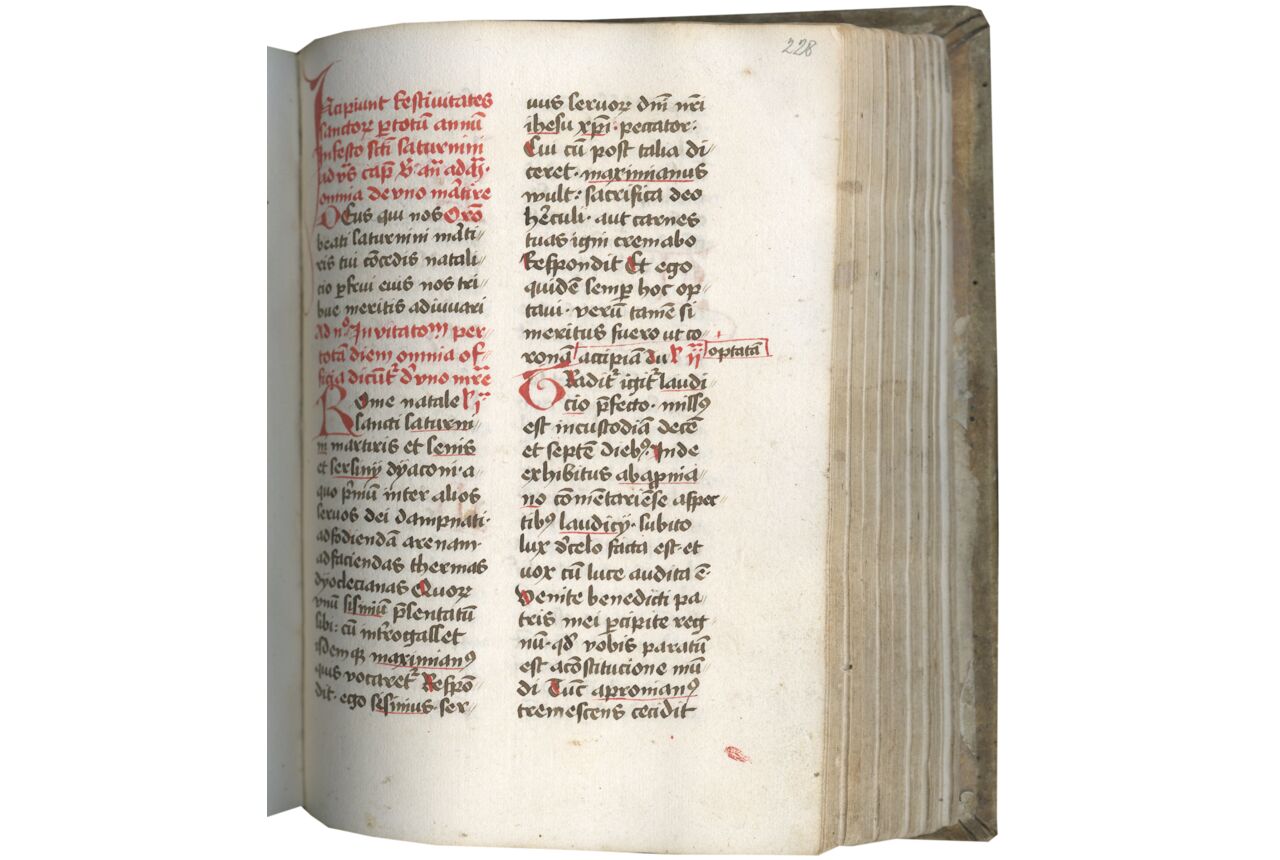 228
Incipiunt festiuitates
sanctoꝝ ꝑ totū annū
In festo sc̄ti saturnini
ad vs̄ cap̄
omnia de vno m̄atire
DEus qui nos Orō
beati saturnini m̄ati⸗
ris tui cōcedis natali⸗
cio ꝑfrui eius nos tri⸗
bue meritis adiuuari
Ad nº Inuitatoꝝ per
totā diem omnia of⸗
ficia dicūtᷣ d̄ vno mr̄e
ROme natale lͥ jͣ
sancti saturni⸗
ni martiris et senis
et sersinij dyaconi a⸗
quo pͥmū inter alios
seruos dei dampnati·
ad fodiendā arenam
ad faciendas thermas
dyoclecianas Quoꝝ
vnū sisiniū p̄sentatū
sibi: cū int̄rogasset
isdemqꝫ maximianꝰ
quis vocaretᷣ Respō⸗
dit· ego sesinius· ser⸗
uus seruoꝝ dn̄i nr̄i
ihesu xp̄i· peccator·
Cui cū post talia di⸗
ceret· maximianus
wult: sacrifica deo
h̄culi· aut carnes
tuas igni cremabo
Respondit Et ego
quidē semꝑ hoc op⸗
taui· verū tamē si
meritus fuero ut co⸗
ronā accipiā du lͥ ijͣ optatā
TRaditᷣ igitᷣ laudi⸗
cio p̄fecto· missꝰ
est in custodiā decē
et septē diebꝰ· Inde
exhibitus ab apnia⸗
no cōmētariēse aspec⸗
tibꝰ laudicij· subito
lux d̄ celo facta est et
vox cū luce audita ē·
Venite benedicti pa⸗
tris mei ꝑcipite reg⸗
nū· qd̄ vobis paratū
est a cōstitucione mū⸗
di Tūc apronianꝰ
tremescens cecidit